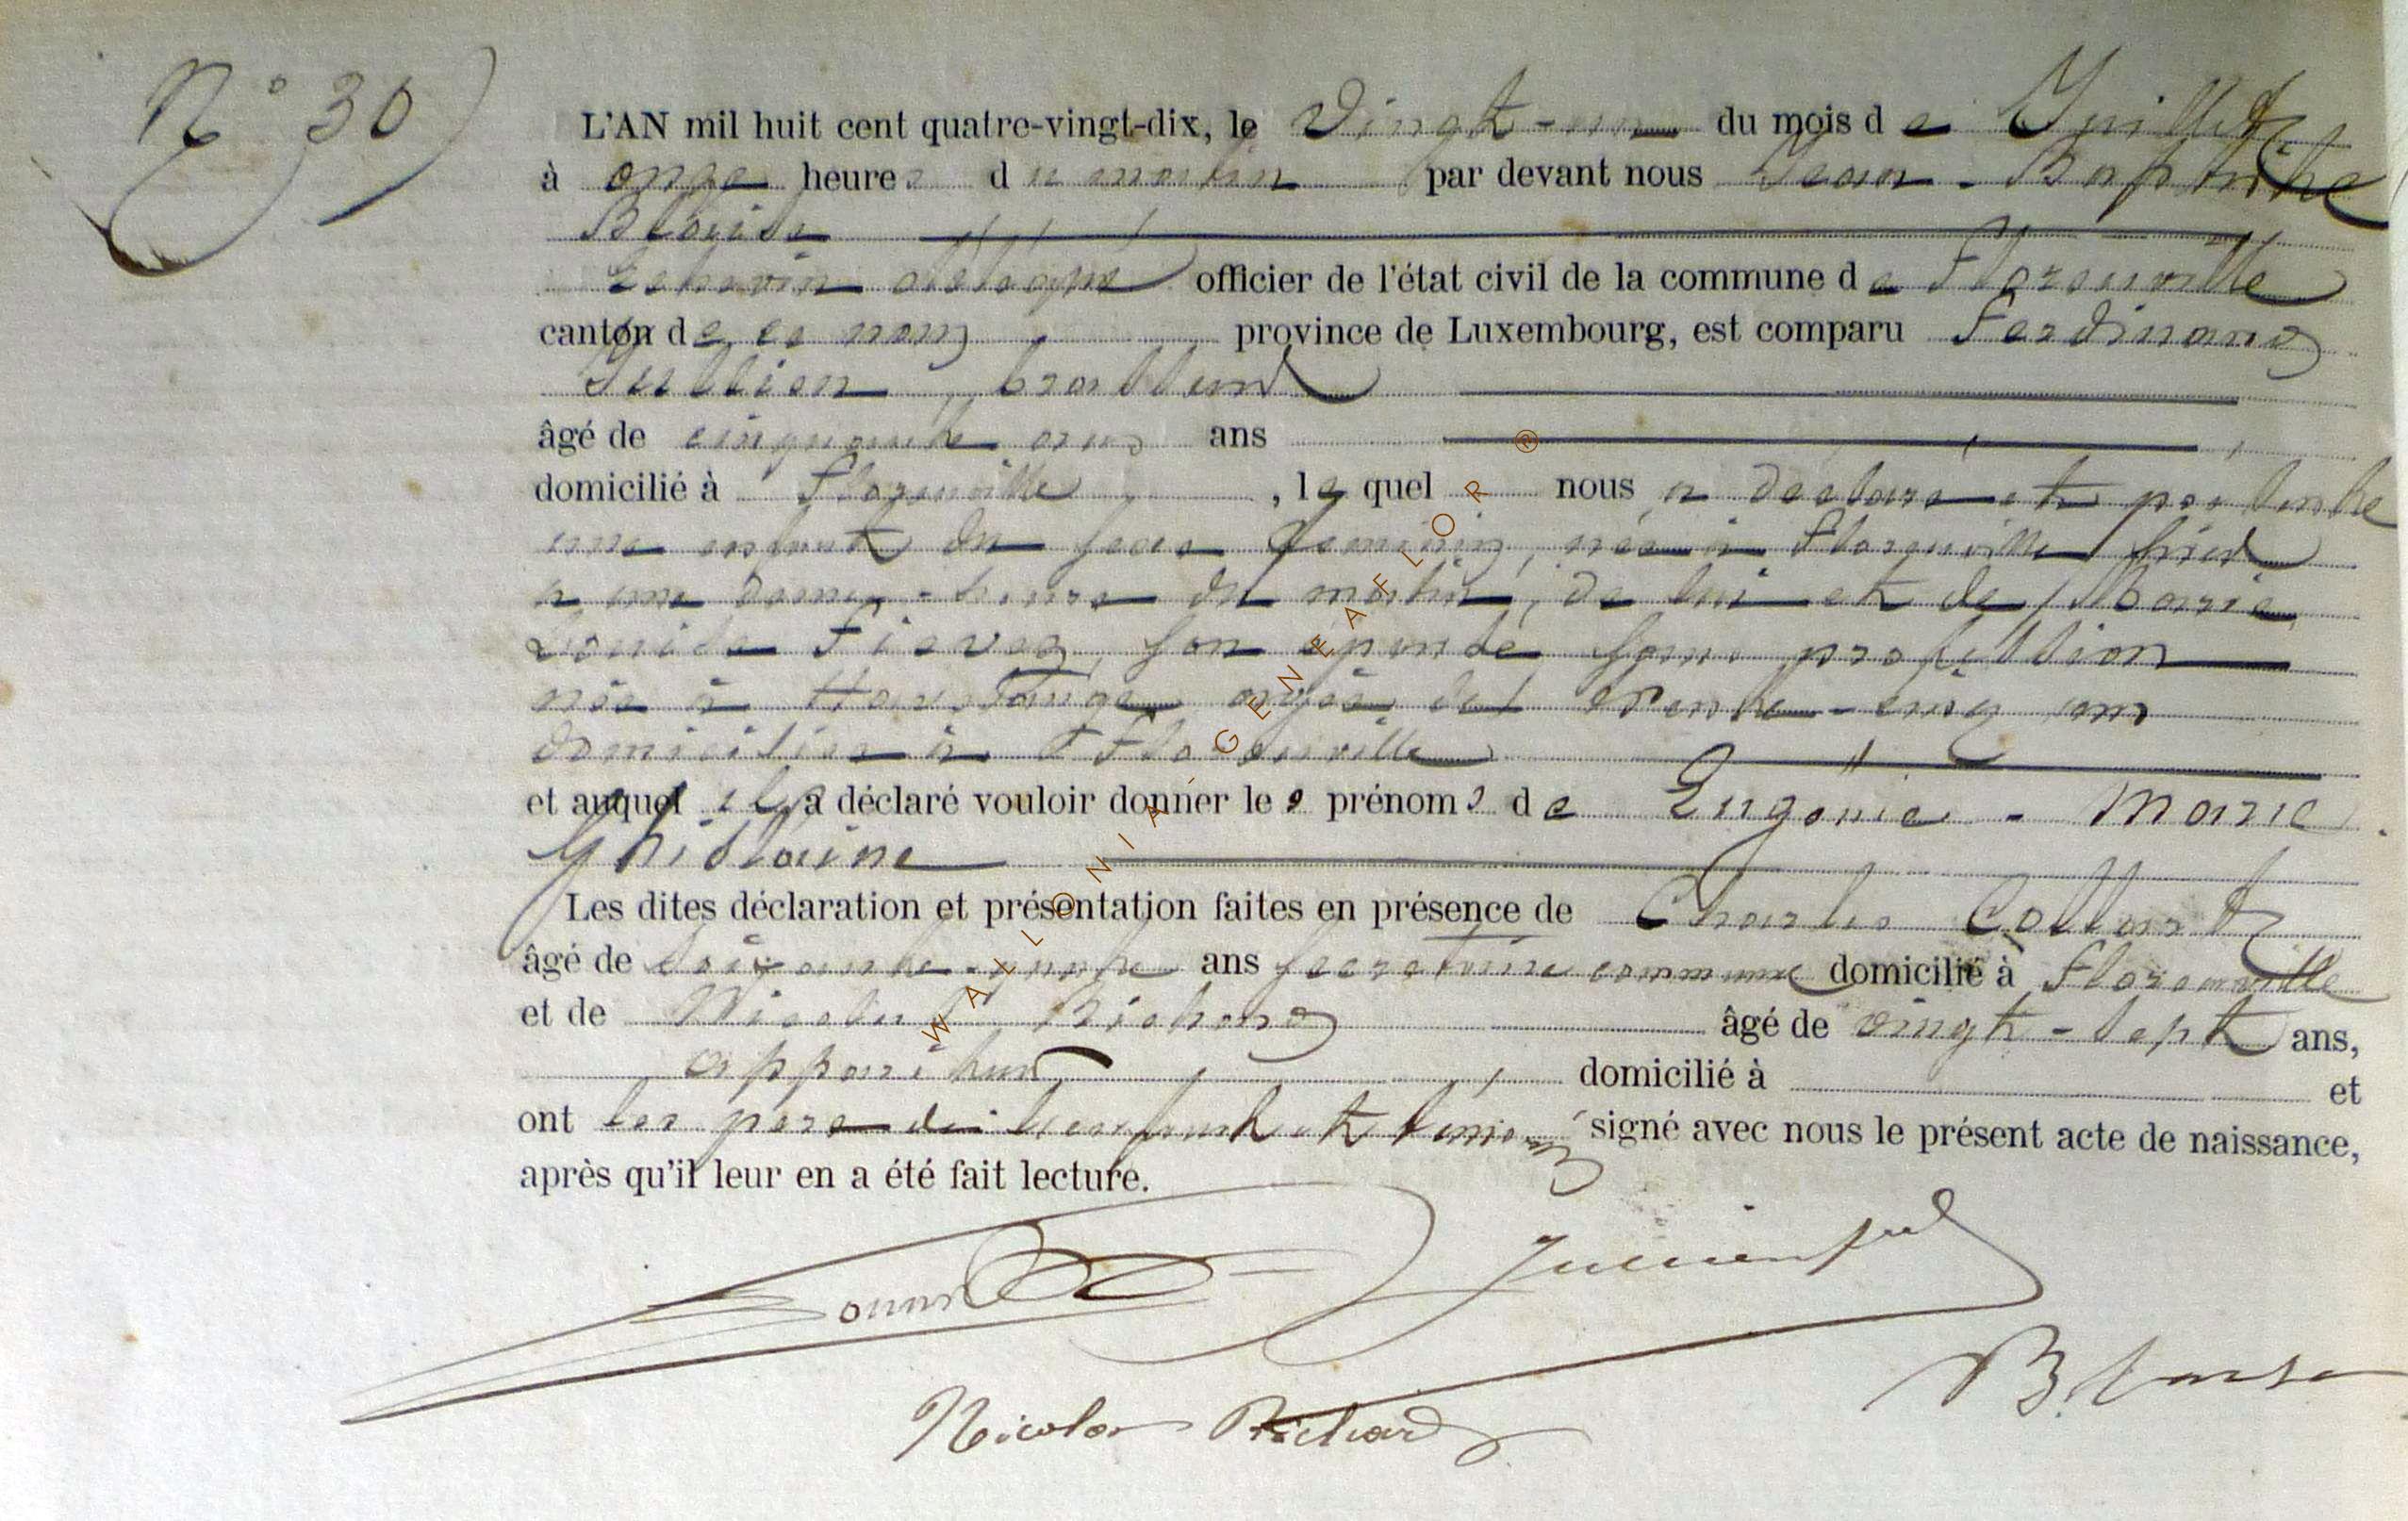 N° 30
L'AN mil huit cent quatre-vingt-dix, le Vingt-un du mois de Juillet
à onze heures du matin par devant nous Jean-Baptiste
Blaise
Echevin délégué officier de l'état civil de la commune de Florenville
canton de ce nom province de Luxembourg, est comparu Ferdinand
Jullien
âgé de cinquante ans ans
domicilié à Florenville, lequel nous a déclaré et présenté
une enfant du sexe féminin, née à Florenville hier
à une demi-heure du matin, de lui et de Marie
Louise Fievez, son épouse sans profession
née à âgée de trente-cinq ans
domiciliée à Florenville
et auquel il a déclaré vouloir donner les prénoms de Eugénie-Marie
Ghislaine
Les dites déclaration et présentation faites en présence de Charles Collart
âgé de soixante-quatre ans secrétaire communal domicilié à Florenville
et de Nicolas Richard âgé de vingt-sept ans,
appariteur domicilié à et
ont les père de l'enfant et témoins signé avec nous le présent acte de naissance,
après qu'il leur en a été fait lecture.
Jullien
Nicolas Richard
WALLONIA GENEAFLOR ®